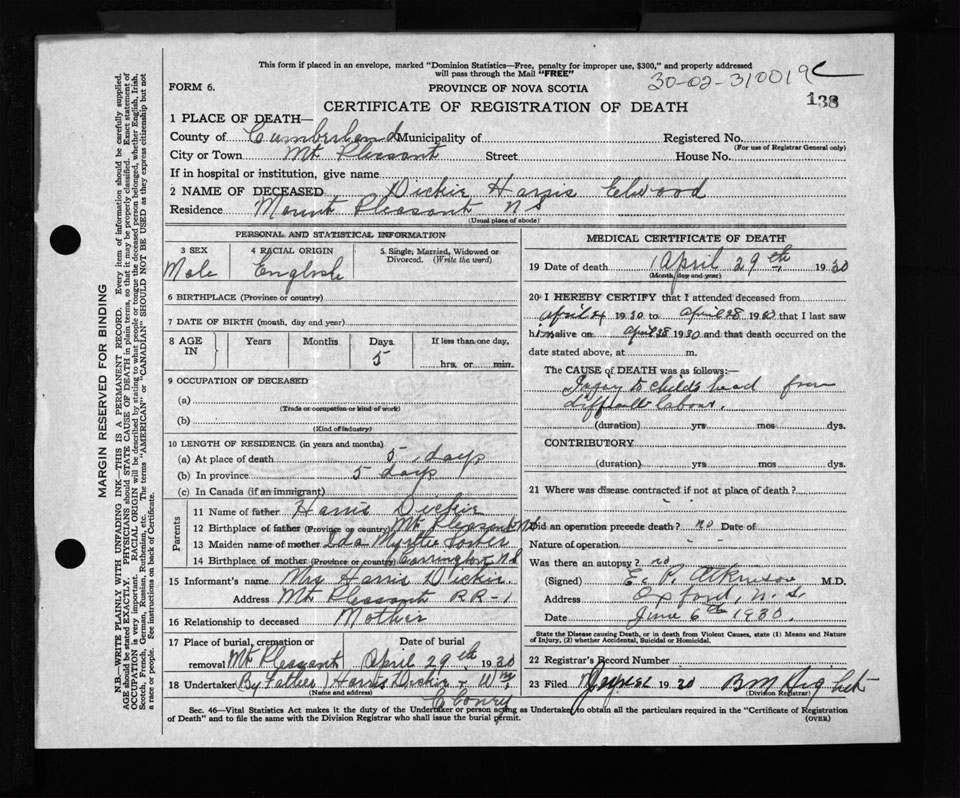 This form if placed in an envelope, marked "Dominion Statistics—Free, penalty for improper use, $300," and properly addressed
will pass through the Mail "FREE"
30-02-310019
FORM 6.
PROVINCE OF NOVA SCOTIA
138
CERTIFICATE OF REGISTRATION OF DEATH
1 PLACE OF DEATH—
County of Cumberland Municipality of Registered No.
(For use of Registrar General only)
City or Town Mt. Pleasant Street House No.
If in hospital or institution, give name
2 NAME OF DECEASED Dickie Harris Elwood
Residence Mount Pleasant N S
(Usual place of abode)
PERSONAL AND STATISTICAL INFORMATION
3 SEX 4 RACIAL ORIGIN 5 Single, Married, Widowed or
Divorced. (Write the word)
Male English
6 BIRTHPLACE (Province or country)
7 DATE OF BIRTH (month, day and year)
8 AGE IN Years Months Days If less than one day,
5 hrs. or min.
9 OCCUPATION OF DECEASED
(a)
(Trade or occupation or kind of work)
(b)
(Kind of industry)
10 LENGTH OF RESIDENCE (in years and months)
(a) At place of death 5 days
(b) In province 5 days
(c) In Canada (if an immigrant)
Parents
11 Name of father Harris Dickie
12 Birthplace of father (Province or country) Mt. Pleasant N S
13 Maiden name of mother Ida Myrtle
14 Birthplace of mother (Province or country) N.S
15 Informant's name Mrs Harris Dickie.
Address Mt Pleasant RR-1
16 Relationship to deceased Mother
17 Place of burial, cremation or Date of burial
removal Mt. Pleasant April 29th 1930
18 Undertaker By Father Harris Dickie + Wm
(Name and address)
MEDICAL CERTIFICATE OF DEATH
19 Date of death April 29th 1930
(Month, day and year)
20 I HEREBY CERTIFY that I attended deceased from
April 24 1930 to April 28 1930 that I last saw
him alive on April 28 1930 and that death occurred on the
date stated above, at m.
The CAUSE OF DEATH was as follows:—
Injury to child's head from
difficult labour.
(duration) yrs mos dys.
CONTRIBUTORY
(duration) yrs mos dys.
21 Where was disease contracted if not at place of death?
Did an operation precede death? no Date of
Nature of operation
Was there an autopsy? no
(Signed) E. P. Atkinson M.D.
Address Oxford, N.S.
Date June 6th 1930.
State the Disease causing Death, or in death from Violent Causes, state (1) Means and Nature
of Injury, (2) whether Accidental, Suicidal or Homicidal.
22 Registrar's Record Number
23 Filed 1930 B M
(Division Registrar)
Sec. 46—Vital Statistics Act makes it the duty of the Undertaker or person acting as Undertaker to obtain all the particulars required in the "Certificate of Registration
of Death" and to file the same with the Division Registrar who shall issue the burial permit.
(OVER)
MARGIN RESERVED FOR BINDING
N.B.—WRITE PLAINLY WITH UNFADING INK—THIS IS A PERMANENT RECORD. Every item of information should be carefully supplied.
AGE should be stated EXACTLY. PHYSICIANS should STATE CAUSE OF DEATH in plain terms, so that it may be properly classified. Exact statement of
OCCUPATION is very important. RACIAL ORIGIN will be described by stating to what people or tongue the deceased person belonged, whether English, Irish,
Scotch, French, German, Russian, Ruthenian, etc. The terms "AMERICAN" or "CANADIAN" SHOULD NOT BE USED as they express citizenship but not
a race or people. See instructions on back of Certificate.